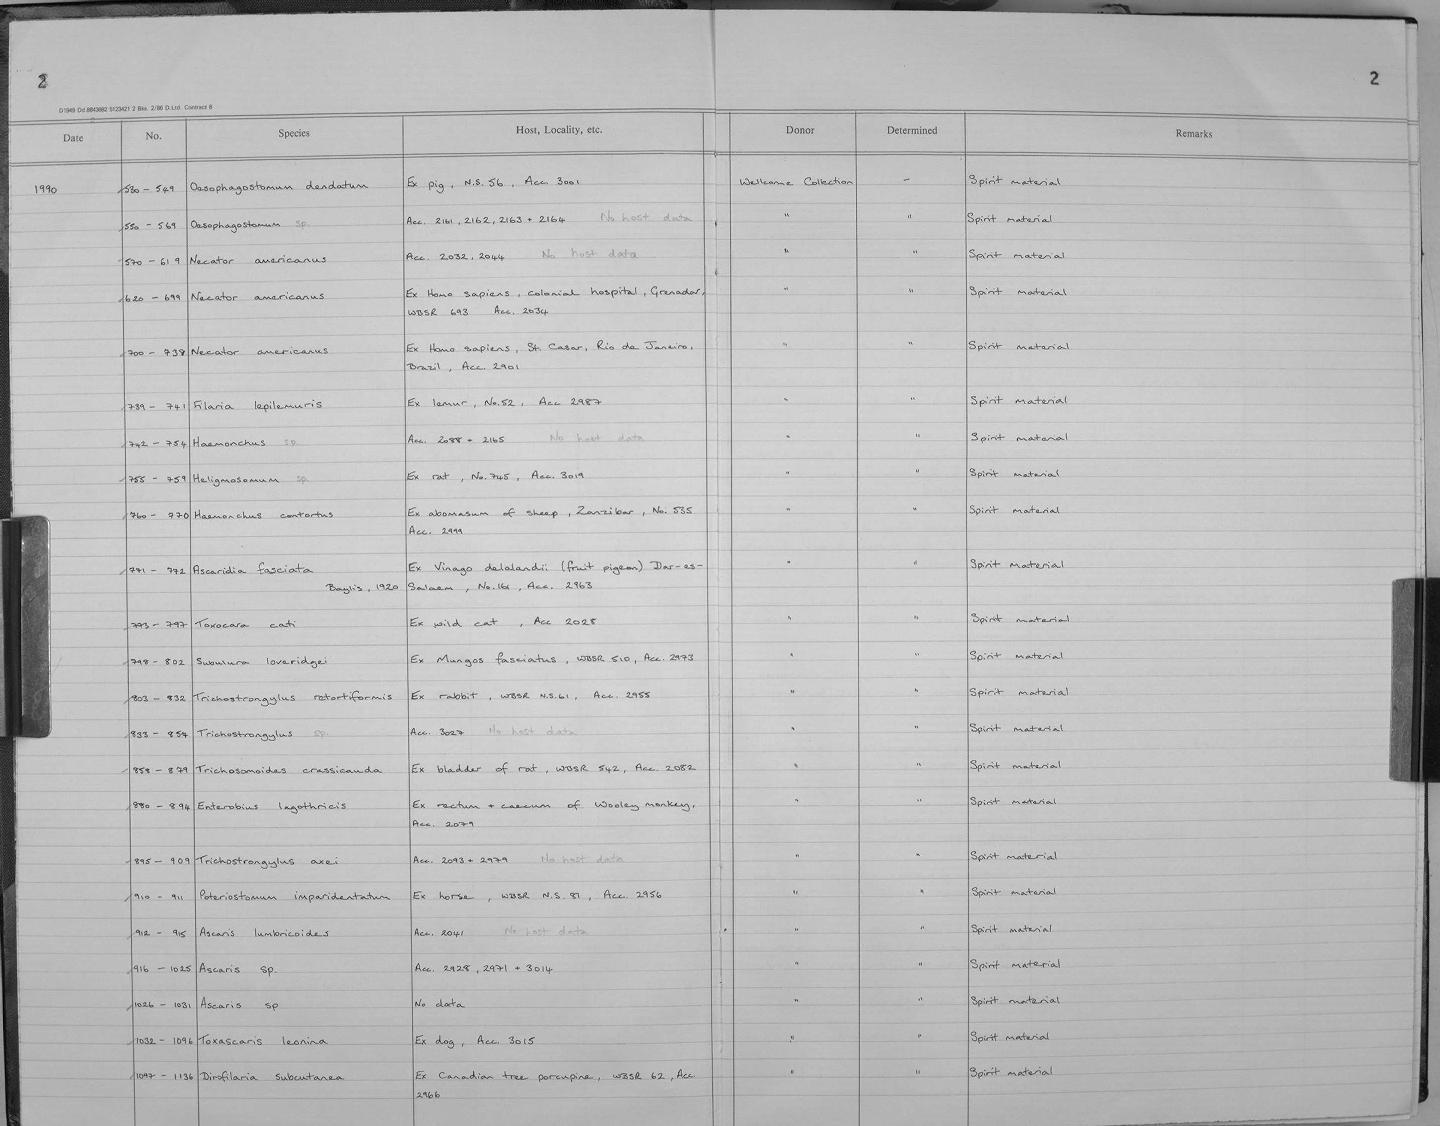 2
2
D1949 Dd.8843982 5123421 2 Bks. 2/86 D.Ltd. Contract 8
Date No. Species Host, Locality, etc. Donor Determined Remarks
1990 530 - 549 Oesophagostomum dendatum Ex pig, N.S. 56, Acc. 3001 Wellcome Collection - Spirit material
550 - 569 Oesophagostomum sp. Acc. 2161, 2162, 2163 + 2164 No host data " " Spirit material
570 - 619 Necator americanus Acc. 2032, 2044 No host data " " Spirit material
620 - 699 Necator americanus Ex Homo sapiens, colonial hospital, Grenada, " " Spirit material
WBSR 693 Acc. 2034
700 - 738 Necator americanus Ex Homo sapiens, St. Casar, Rio de Janeiro, " " Spirit material
Brazil, Acc. 2901
739 - 741 Filaria lepilemuris Ex lemur, No.52, Acc 2987 " " Spirit material
742 - 754 Haemonchus sp. Acc. 2088 + 2165 No host data " " Spirit material
755 - 759 Heligmosomum sp. Ex rat, No. 745, Acc. 3019 " " Spirit material
760 - 770 Haemonchus contortus Ex abomasum of sheep, Zanzibar, No. 535 " " Spirit material
Acc. 2999
771 - 772 Ascaridia fasciata Ex Vinago delalandii (fruit pigeon) Dar-es- " " Spirit material
Baylis, 1920 Salaem, No. 161, Acc. 2963
773 - 797 Toxocara cati Ex wild cat, Acc 2028 " " Spirit material
798 - 802 Subulura loveridgei Ex Mungos fasciatus, WBSR 510, Acc. 2973 " " Spirit material
803 - 832 Trichostrongylus retortiformis Ex rabbit, WBSR N.S.61, Acc. 2955 " " Spirit material
833 - 857 Trichostrongylus sp. Acc. 3027 No host data " " Spirit material
858 - 879 Trichosomoides crassicauda Ex bladder of rat, WBSR 542, Acc. 2082 " " Spirit material
880 - 894 Enterobius lagothricis Ex rectum + caecum of Wooley monkey, " " Spirit material
Acc. 2079
895 - 909 Trichostrongylus axei Acc. 2093 + 2979 No host data " " Spirit material
910 - 911 Poteriostomum imparidentatum Ex horse, WBSR N.S. 81, Acc. 2956 " " Spirit material
912 - 915 Ascaris lumbricoides Acc. 2041 No host data " " Spirit material
916 - 1025 Ascaris sp. Acc. 2928, 2971 + 3014 " " Spirit material
1026 - 1031 Ascaris sp No data " " Spirit material
1032 - 1096 Toxascaris leonina Ex dog, Acc. 3015 " " Spirit material
1097 - 1136 Dirofilaria subcutanea Ex Canadian tree porcupine, WBSR 62, Acc " " Spirit material
2966